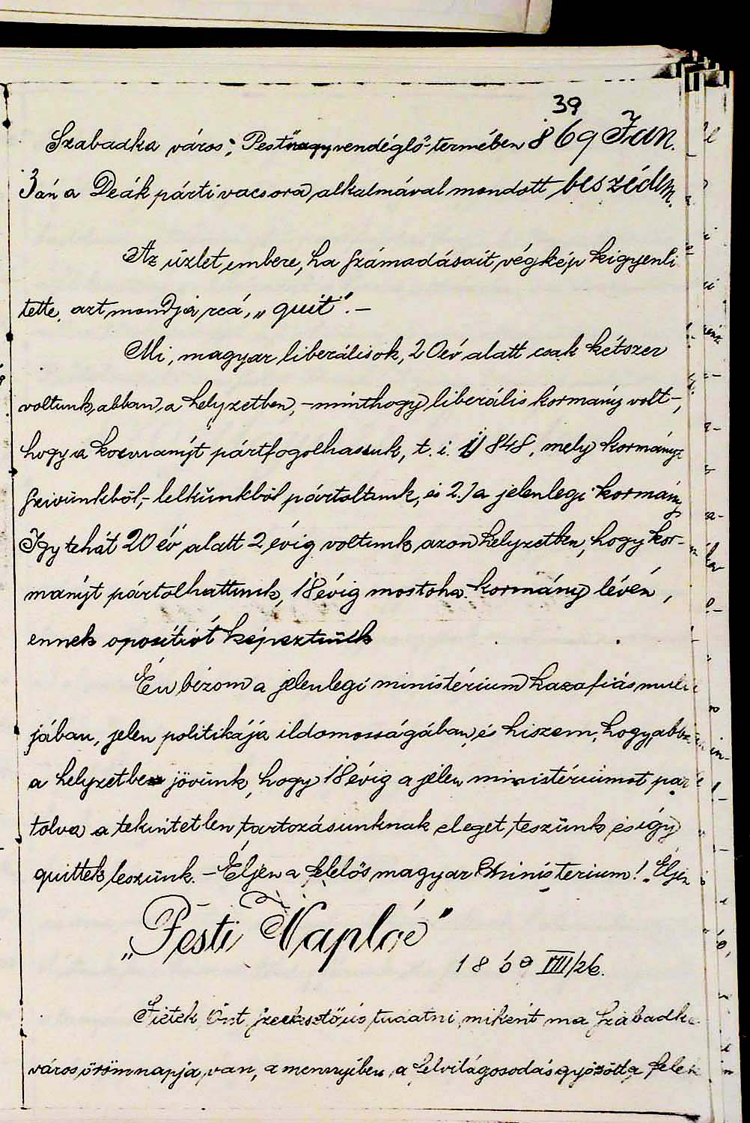 39
Szabadka város, Pest nagyvendéglő-termében 869 Jan.
3án a Deák párti vacsora alkalmával mondott beszédem.
Az üzlet embere, ha számadásait végkép kigyenli
tette, azt mondja reá, „quit". –
Mi, magyar liberálisok, 20 év alatt csak kétszer
voltunk abban a helyzetben, – minthogy liberális kormány volt –,
hogy a kormányt pártfogolhassuk, t. i. 1) 848, mely kormányt
szivünkből, – lelkünkből pártoltunk, és 2.) a jelenlegi kormány
Igy tehát 20 év alatt 2 évig voltunk azon helyzetben, hogy kor-
mányt pártolhattunk, 18 évig mostoha kormány lévén,
ennek opositiót képeztünk
Én bizom a jelenlegi ministérium hazafiás
jában, jelen politikája ildomosságában, és hiszem, hogy
a helyzetben jövünk, hogy 18 évig a jelen ministériumot pár
tolva a tekintetlen tartozásunknak eleget teszünk és így
quittek leszünk. – Éljen a felelős magyar Ministerium! Éljen
„Pesti Naplóé"
1869 VIII/26.
szerkesztő úr tudatni, miként ma Szabadka
város örömnapja van, a mennyiben a felvilágosodás győzött a